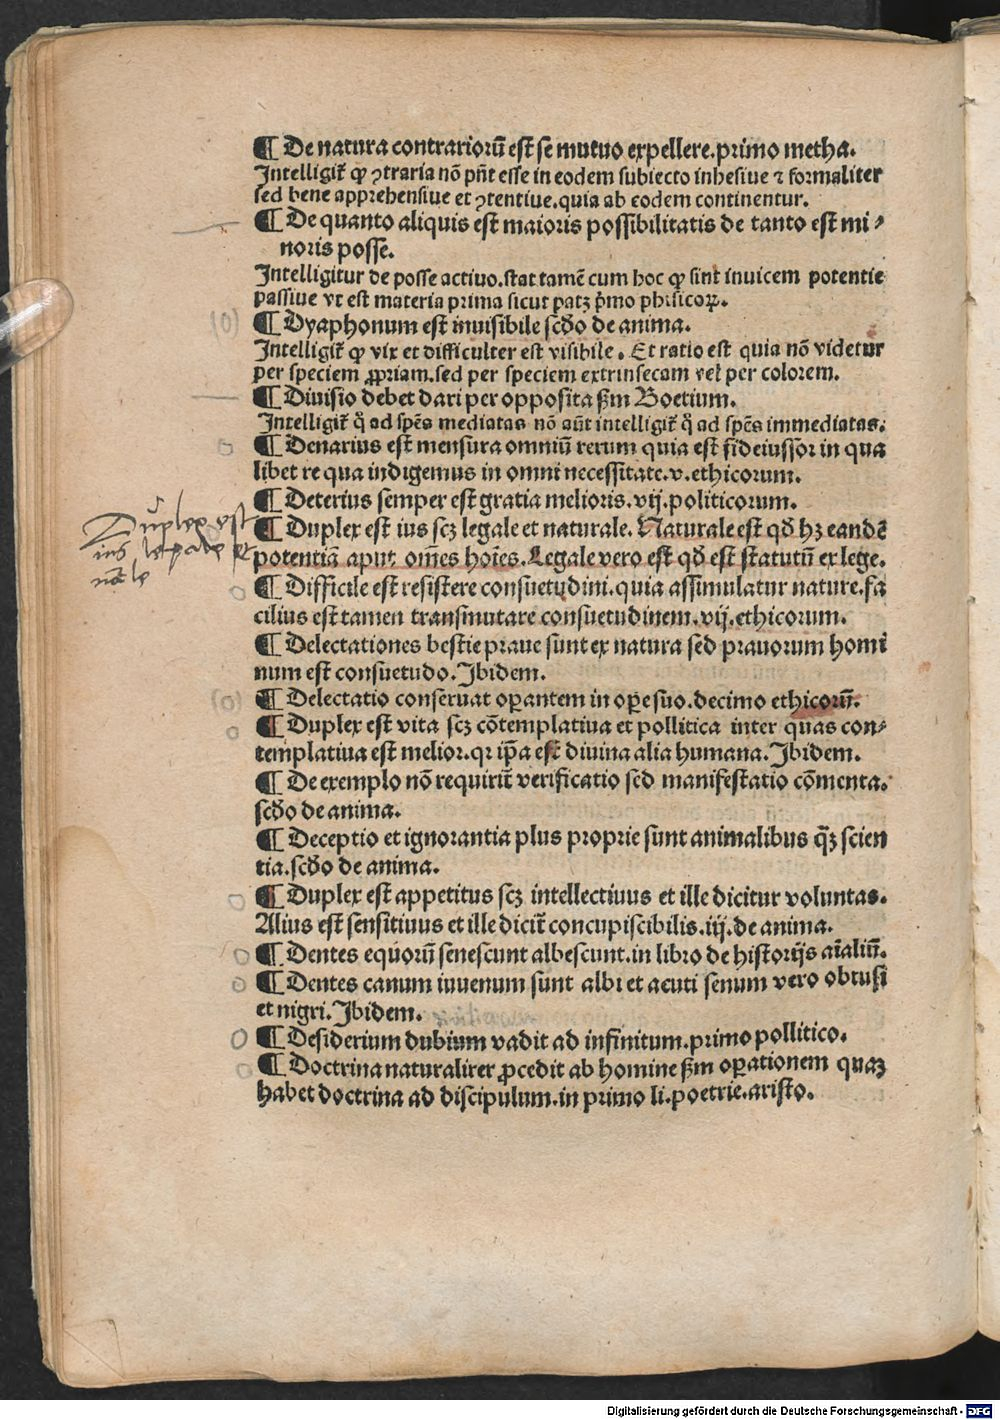 ¶ De natura contrariorū est se mutuo expellere.primo metha.
Intelligit̄ ꝙ ꝯtraria nō pn̄t esse in eodem subiecto inhesiue ⁊ formaliter
sed bene apprehensiue et ꝯtentiue.quia ab eodem continentur.
¶ De quanto aliquis est maioris possibilitatis de tanto est mi⸗
noris posse.
Intelligitur de posse actiuo.stat tamē cum hoc ꝙ sint inuicem potentie
passiue vt est materia prima sicut patꝫ p̄mo phisicoꝝ.
¶ Dyaphonum est inuisibile scd̄o de anima.
Intelligit̄ ꝙ vix et difficulter est visibile. Et ratio est quia nō videtur
per speciem ꝓpriam.sed per speciem extrinsecam vel per colorem.
¶ Diuisio debet dari per opposita ẜm Boetium.
Intelligit̄ q̊ ad spēs mediatas nō aūt intelligit̄ q̊ ad spēs immediatas.
¶ Denarius est mensura omniū rerum quia est fideiussor in qua
libet re qua indigemus in omni necessitate.v.ethicorum.
¶ Deterius semper est gratia melioris.vij.politicorum.
¶ Duplex est ius scꝫ legale et naturale. Naturale est qd̄ hꝫ eandē
potentiā aput om̄es hoīes. Legale vero est qd̄ est statutū ex lege.
Duplex est
ius le
¶ Difficile est resistere consuetudini.quia assimulatur nature.fa
cilius est tamen transmutare consuetudinem.vij.ethicorum.
¶ Delectationes bestie praue sunt ex natura sed prauorum homi
num est consuetudo.Ibidem.
¶ Delectatio conseruat oꝑantem in oꝑe suo.decimo ethicorū.
¶ Duplex est vita scꝫ cōtemplatiua et pollitica inter quas con⸗
templatiua est melior.qꝛ ip̄a est diuina alia humana.Ibidem.
¶ De exemplo nō requirit̄ verificatio sed manifestatio cōmenta.
scd̄o de anima.
¶ Deceptio et ignorantia plus proprie sunt animalibus q̄ꝫ scien
tia.scd̄o de anima.
¶ Duplex est appetitus scꝫ intellectiuus et ille dicitur voluntas.
Alius est sensitiuus et ille dicit̄ concupiscibilis.iij.de anima.
¶ Dentes equorū senescunt albescunt.in libro de historijs aīaliū.
¶ Dentes canum iuuenum sunt albi et acuti senum vero obtusi
et nigri.Ibidem.
¶ Desiderium dubium vadit ad infinitum.primo pollitico.
¶ Doctrina naturaliter ꝓcedit ab homine ẜm oꝑationem quaꝫ
habet doctrina ad discipulum.in primo li.poetrie.aristo.
Digitalisierung gefördert durch die Deutsche Forschungsgemeinschaft - DFG